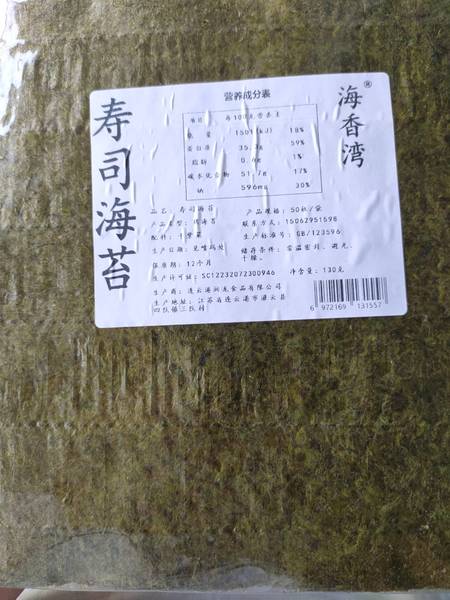 寿司海苔
海香湾®
营养成分表
项目 每100克营养素
能量 1501(kJ) 18%
蛋白质 35.3g 59%
脂肪 0.6g 1%
碳水化合物 51.7g 17%
钠 596mg 30%
品名：寿司海苔 产品规格：50枚/袋
产品类型： 联系方式：15062951598
配料：干紫菜 生产标准号：GB/123596
生产日期：见喷码处 储存条件：常温密封、避光、
干燥。
保质期：12个月
生产许可证：SC12232072300946 净含量：130克
生产商：连云港润龙食品有限公司
生产地址：江苏省连云港市灌云县
四队镇三队村
6 972169 131557